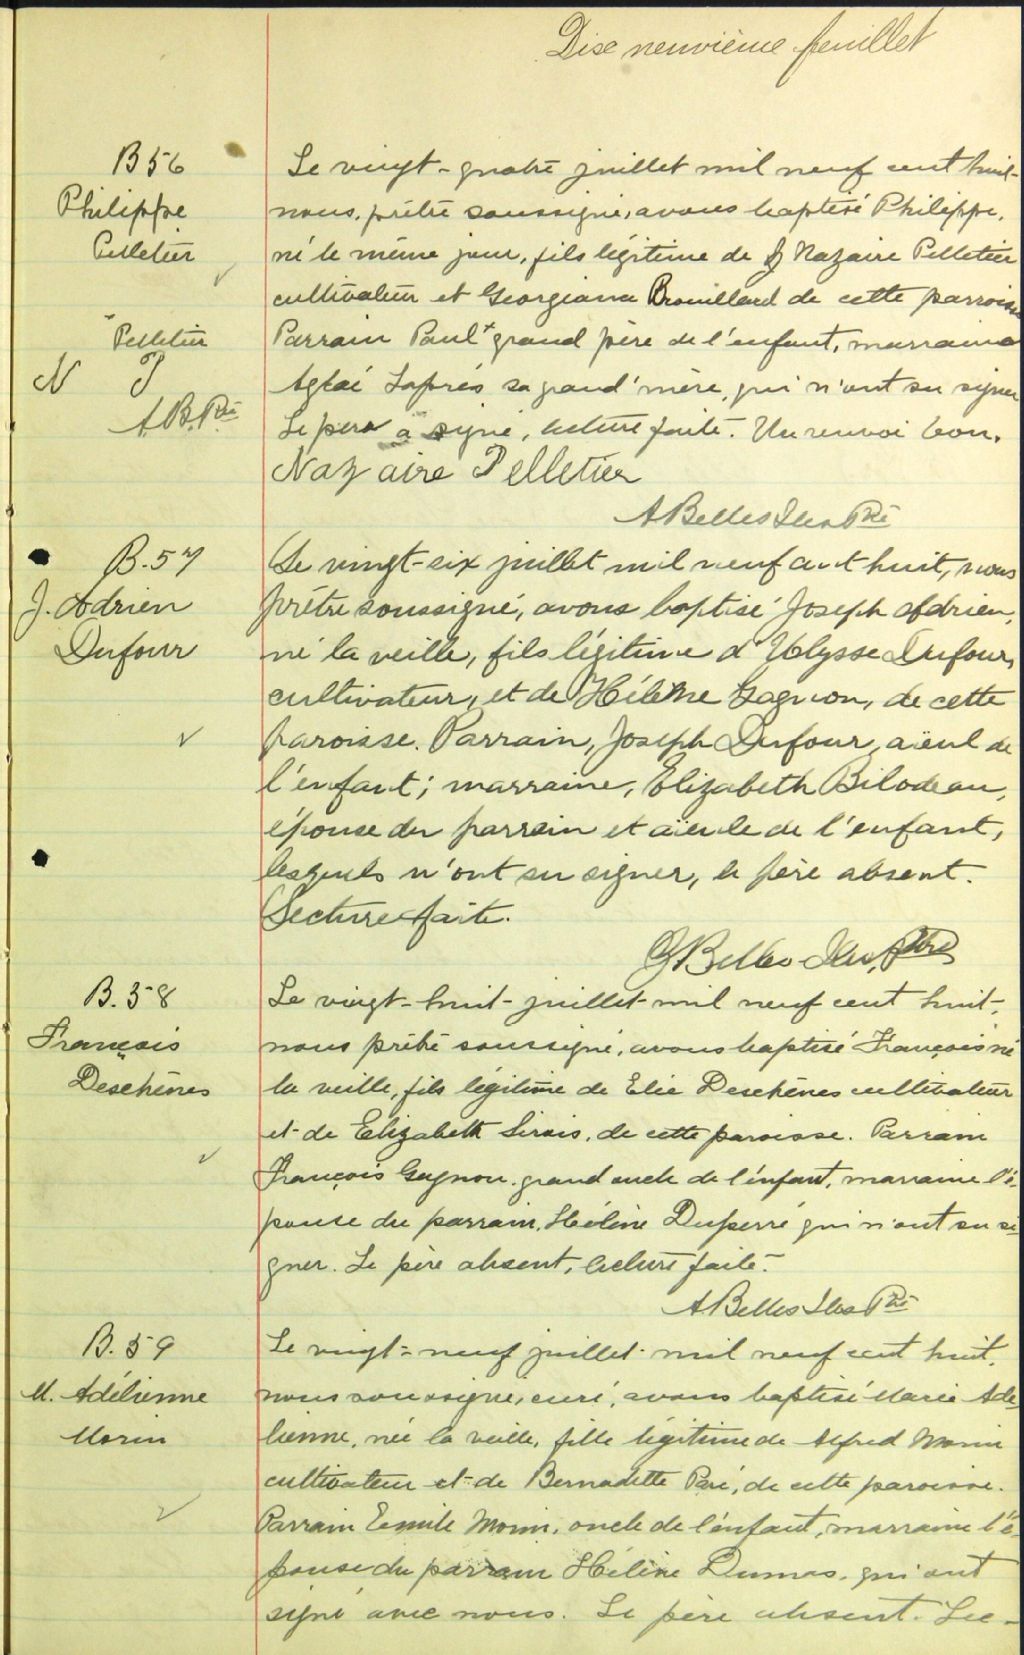 Dixe neuvième feuillet
B 56
Philippe
Pelletier
Pelletier
N P
A.B. Ptre
Le vingt-quatre juillet mil neuf cent huit
nous, prêtre soussigné, avons baptisé Philippe,
né le même jour, fils légitime de Nazaire Pelletier
cultivateur et Georgiana Brouillard de cette parroisse
Parrain Paul + grand père de l'enfant, marraine
Aglaé Laprés sa grand'mère, qui n'ont su signer
Le père a signé, lecture faite. Un renvoi bon.
Nazaire Pelletier
A Belles Iles Ptre
B. 57
J. Adrien
Dufour
Le vingt-six juillet mil neuf cent huit, nous
prêtre soussigné, avons baptisé Joseph Adrien,
né la veille, fils légitime d'Ulysse Dufour,
cultivateur, et de Hélène Gagnon, de cette
paroisse. Parrain, Joseph Dufour, aïeul de
l'enfant; marraine, Elizabeth Bilodeau,
épouse du parrain et aïeule de l'enfant,
lesquels n'ont su signer, le père absent.
Lecture faite.
G Belles-Iles, Ptre
B. 58
François
Deschènes
Le vingt-huit juillet mil neuf cent huit,
nous prêtre soussigné, avons baptisé François né
la veille, fils légitime de Elie Deschènes cultivateur
et de Elizabeth Sirois, de cette paroisse. Parrain
François Gagnon, grand oncle de l'enfant, marraine l'é-
pouse du parrain, Hélène Duperré qui n'ont su si
gner. Le père absent, lecture faite.
A Belles Iles Ptre
B. 59
M. Adélienne
Morin
Le vingt-neuf juillet mil neuf cent huit,
nous soussigné, curé, avons baptisé Marie Adé
lienne, née la veille, fille légitime de Alfred Morin
cultivateur et de Bernadette Paré, de cette paroisse.
Parrain Emile Morin, oncle de l'enfant, marraine l'é-
pouse du parrain Hélène Dumas, qui ont
signé avec nous. Le père absent. Lec-